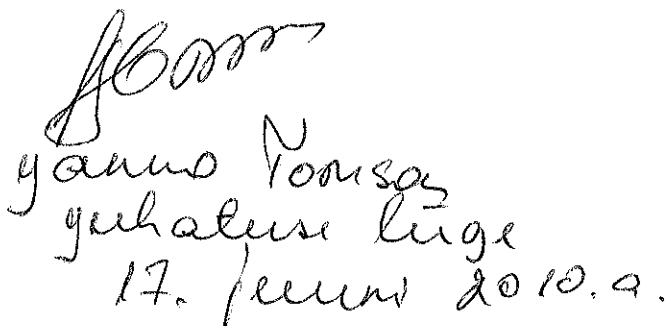 Janno Tomson
juhatuse liige
17. juuni 2010.a.